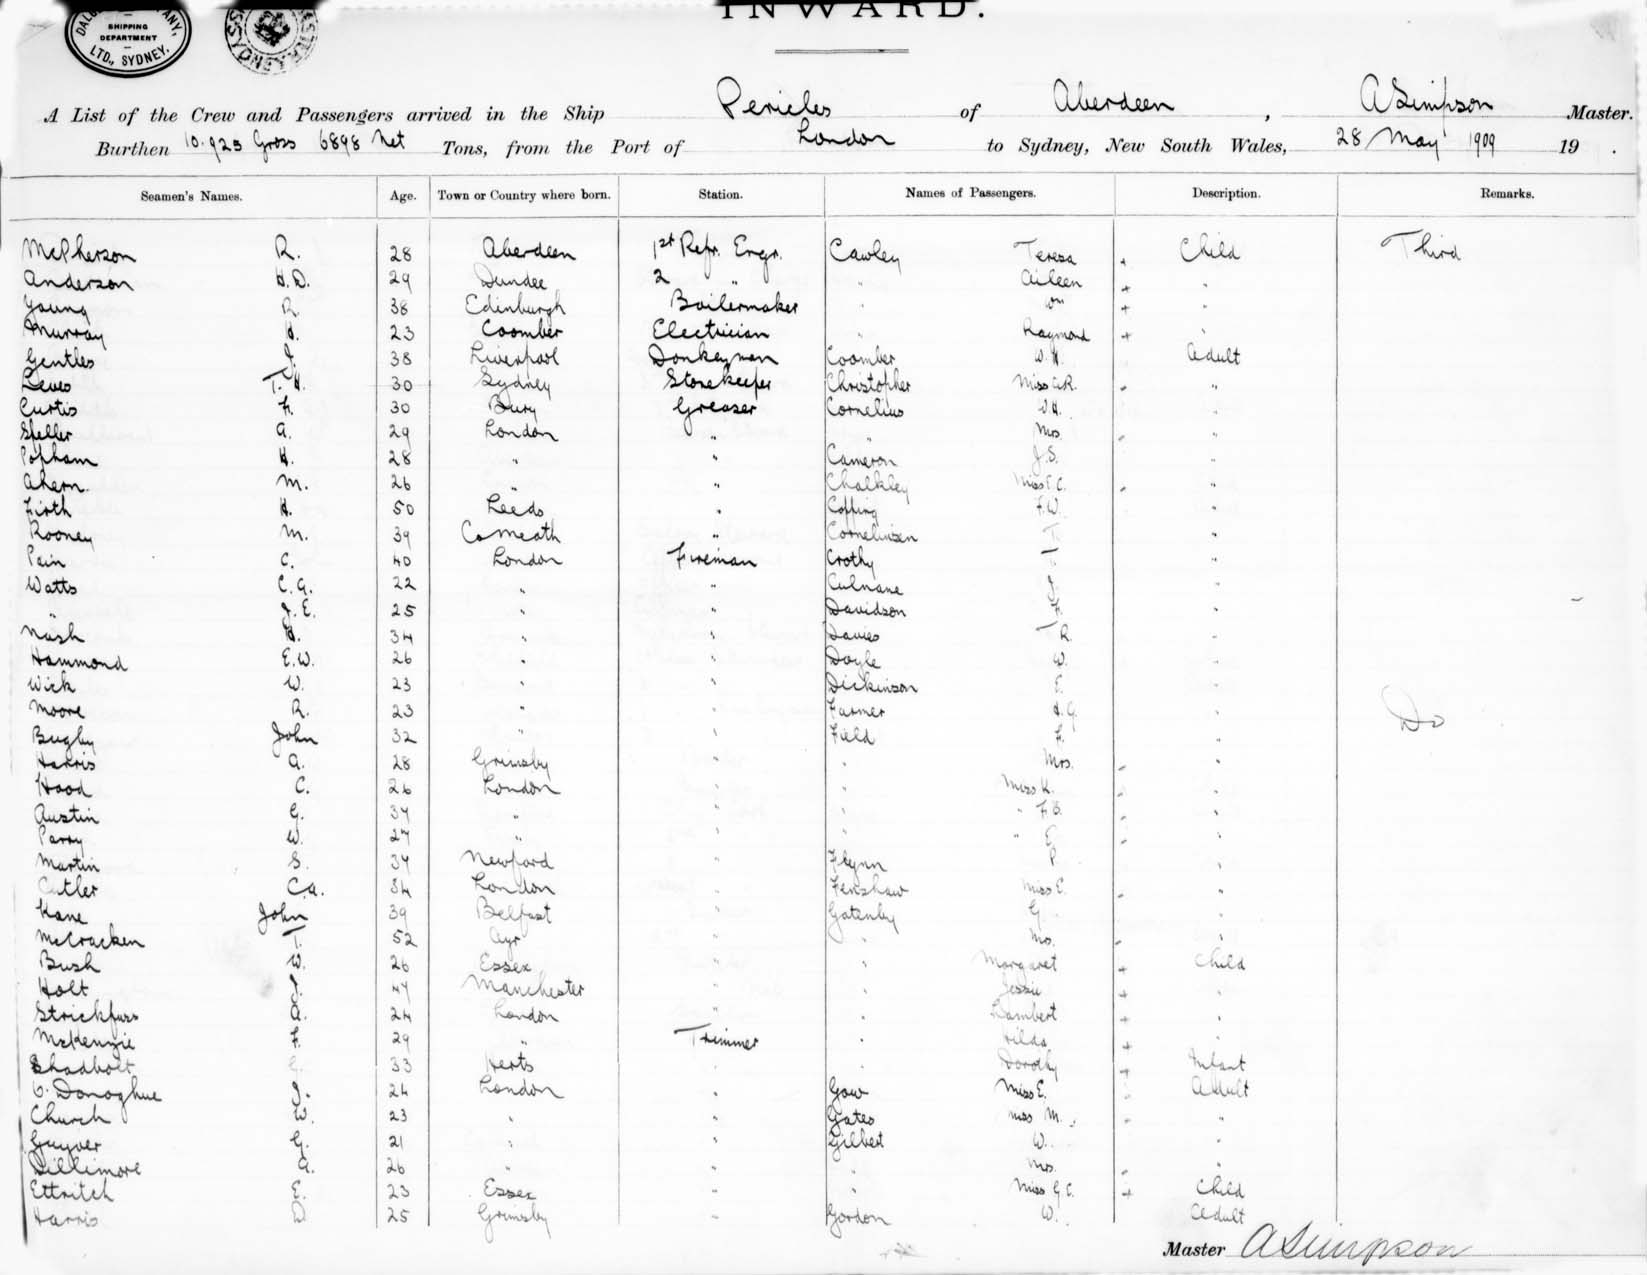 DALGETY & COMPANY, LTD., SYDNEY. SHIPPING DEPARTMENT
SYDNEY
INWARD.
A List of the Crew and Passengers arrived in the Ship Pericles of Aberdeen, A Simpson Master.
Burthen 10.925 Gross 6898 Net Tons, from the Port of London to Sydney, New South Wales, 28 May 1909 19 .
Seamen's Names. Age. Town or Country where born. Station. Names of Passengers. Description. Remarks.
McPherson R. 28 Aberdeen 1st Refr. Engr. Cawley Teresa + Child Third
Anderson H.D. 29 Dundee 2 " " Aileen + "
Young R. 38 Edinburgh Boilermaker " Wm + "
Murray 23 Coomber Electrician " Raymond + "
Gentles J. 38 Liverpool Donkeyman Coomber W.H. Adult
Leves T.H. 30 Sydney Storekeeper Christopher Miss A.R. "
Curtis F. 30 Bury Greaser Cornelius W.H. "
Speller A. 29 London " " Mrs. "
Popham H. 28 " " Cameron J.S. "
Ahern. M. 26 " " Chalkley Miss E.C. "
Firth H. 50 Leeds " Copping F.W. "
Rooney M. 39 Co Meath " Corneliusen T. "
Pain C. 40 London Fireman Crothy T "
Watts C.A. 22 " " Culnane J. "
" J.E. 25 " " Davidson F. "
Nash 34 " " Davies T R. "
Hammond E.W. 26 " " Doyle W. "
Wick W. 23 " " Dickinson E. "
Moore R. 23 " " Farmer H.G. " Do
Bugby John 32 " " Field F. "
Harris A. 28 Grimsby " " Mrs. "
Hood C. 26 London " " Miss K. "
Austin G. 34 " " " " F.B. "
Parry W. 27 " " " " E. "
Martin S. 34 Newford " Flynn P. "
Cutler C.A. 34 London " Fenshaw Miss E. "
Kane John 39 Belfast " Gatenby G. "
McCracken T. 52 Ayr " " Mrs. "
Bush W. 26 Essex " " Margaret + Child
Holt J. 47 Manchester " " Jessie + "
Strickfuss A. 24 London " " Lambert + "
McKenzie F. 29 " Trimmer " Hilda + "
Shadbolt G. 33 Herts " " Dorothy + Infant
O. Donoghue J. 24 London " Gow Miss E. Adult
Church W. 23 " " Gates Miss M. "
Guyver G. 21 " " Gilbert W. "
Dillimore A. 26 " " " Mrs. "
Ettritch E. 23 Essex " " Miss G.C. + Child
Harris D 25 Grimsby " Gordon W. Adult
Master A Simpson